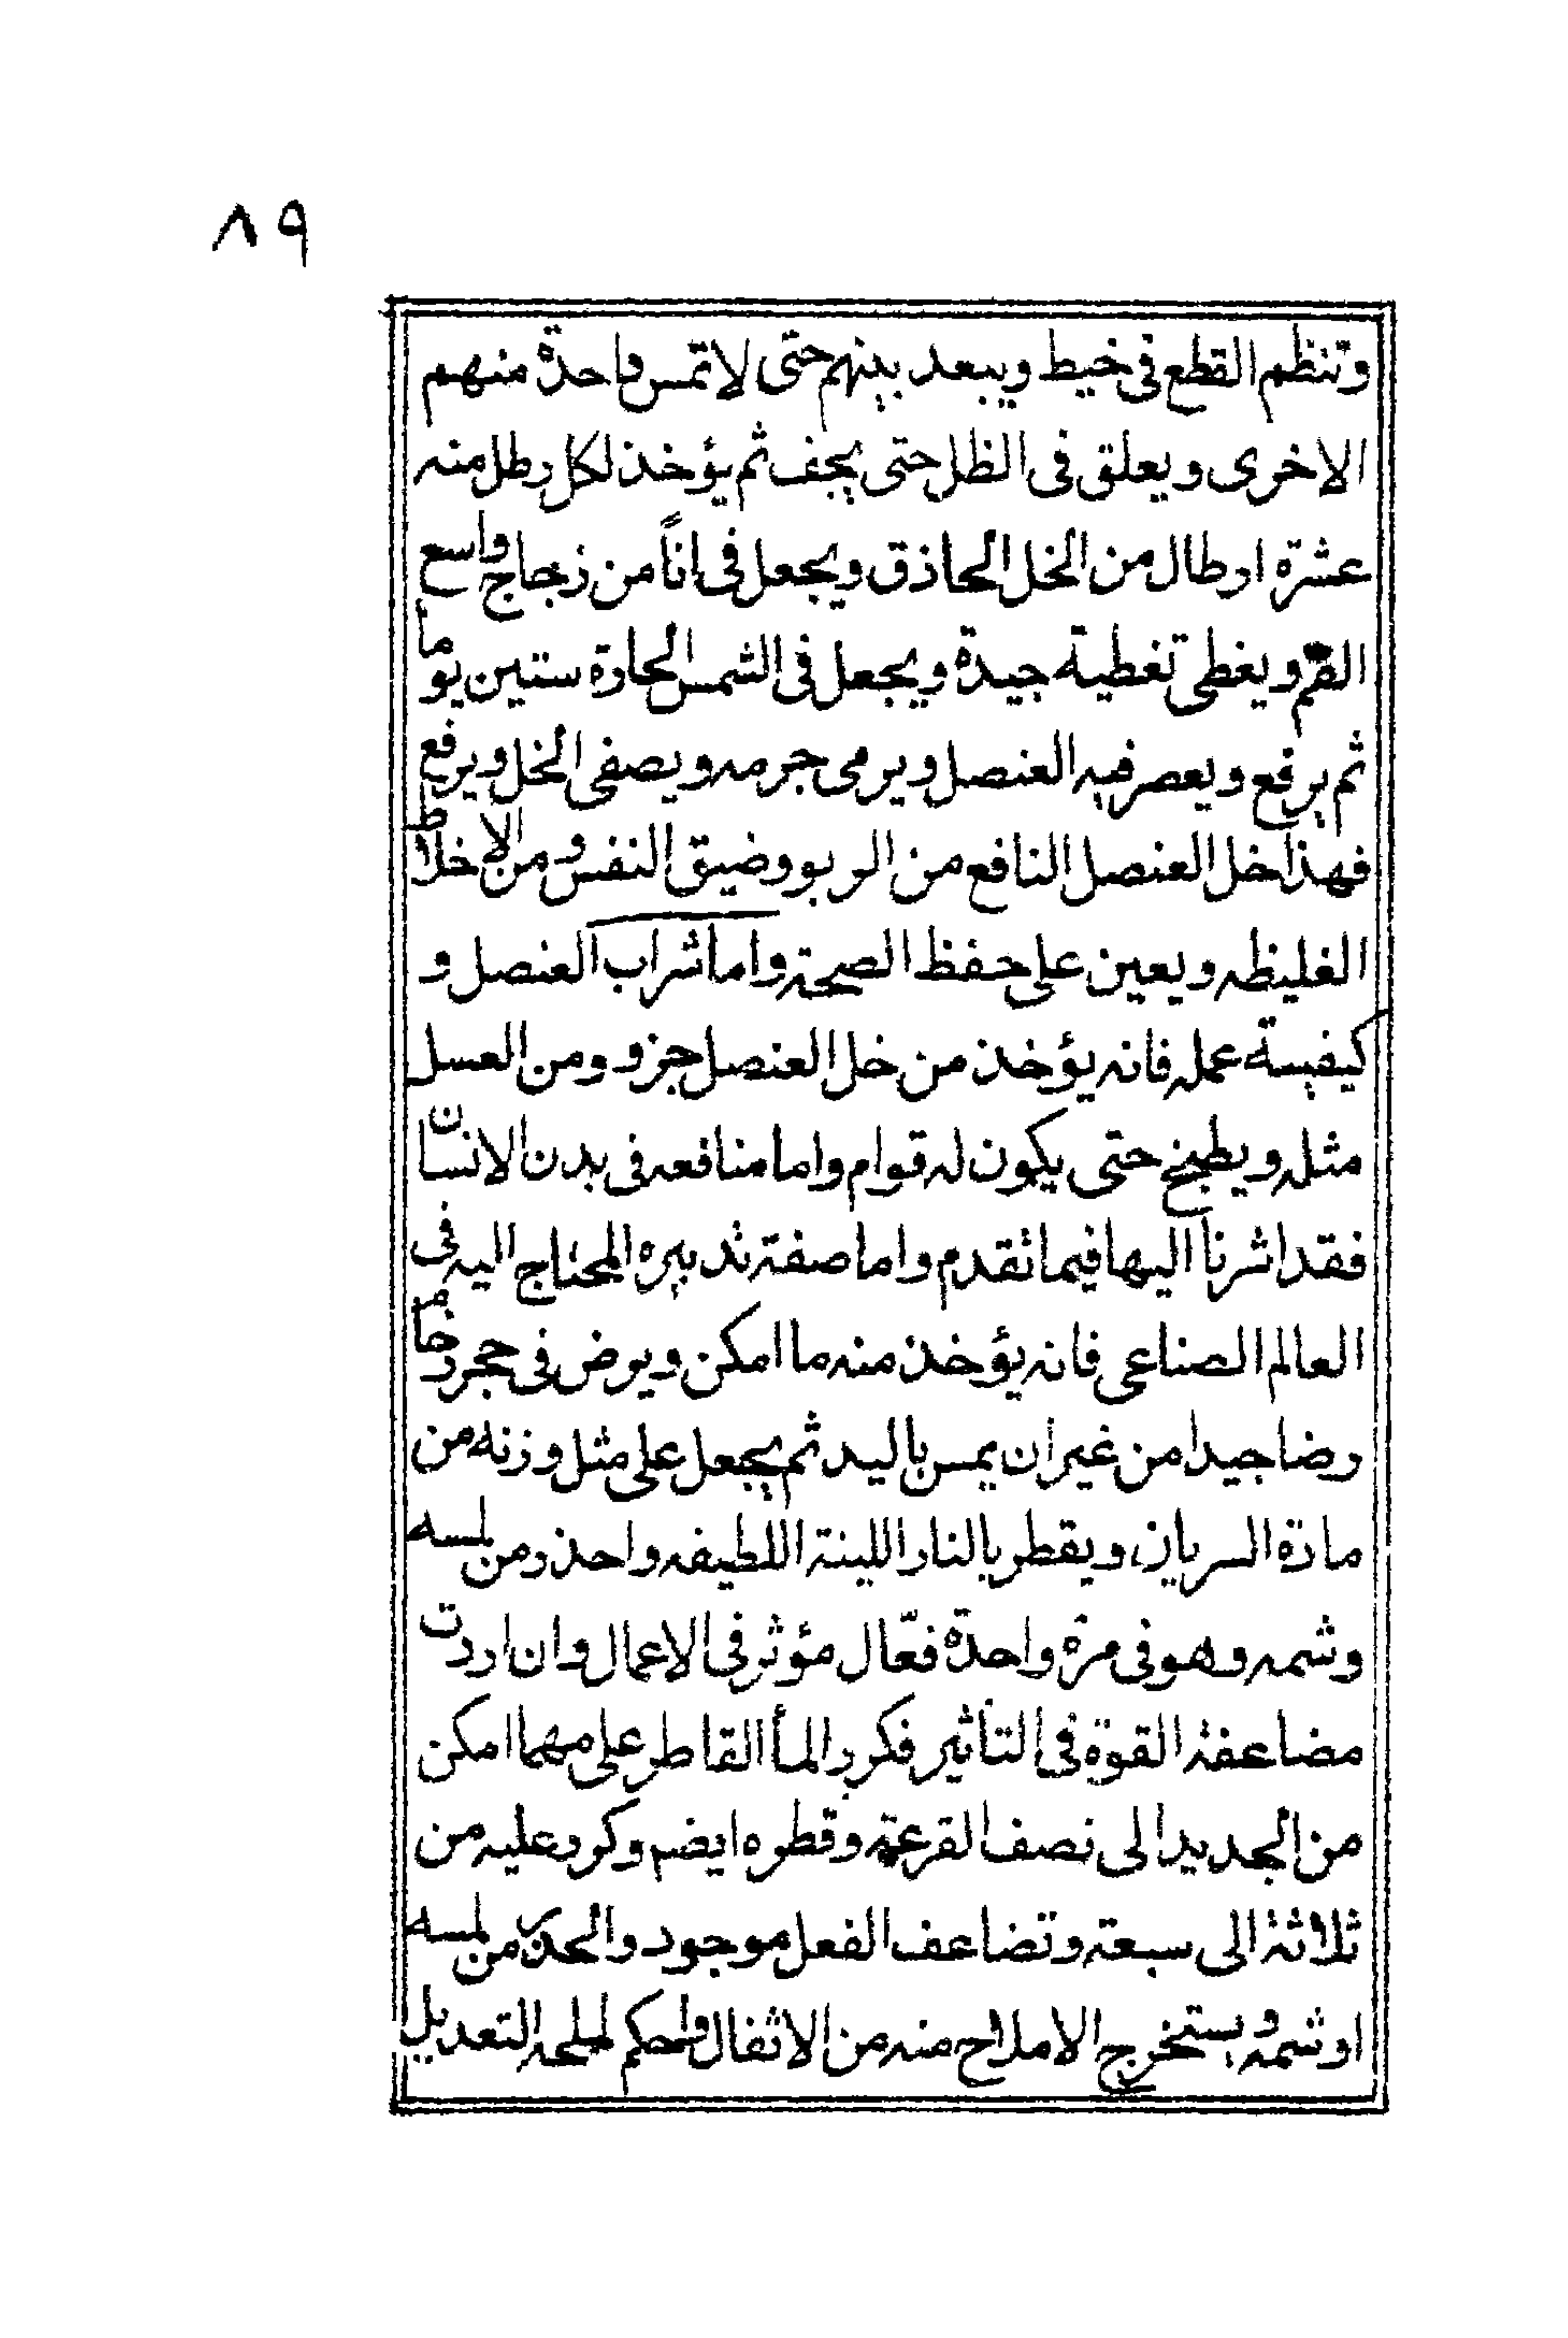 ٨٩
وتنظم القطع فى خيط ويبعد بينهم حتى لا تمس واحدة منهم
الاخرى ويعلق فى الظل حتى يجف ثم يؤخذ لكل رطل منه
عشرة ارطال من الخل الحاذق ويجعل فى اناً من زجاج واسع
الفم ويغطى تغطية جيدة ويجعل فى الشمس الحارة ستين يوما
ثم يرفع ويعصر فيه العنصل ويرمى جرمه ويصفى الخل ويرفع
فهذا خل العنصل النافع من الربو وضيق النفس ومن الاخلاط
الغليظه ويعين على حفظ الصحة واما شراب العنصل و
كيفية عمله فانه يؤخذ من خل العنصل جزو ومن العسل
مثله ويطبخ حتى يكون له قوام واما منافعه فى بدن الانسان
فقد اشرنا اليها فيما تقدم واما صفة تدبيره المحتاج اليه فى
العالم الصناعى فانه يؤخذ منه ما امكن ويرض فى حجر رخام
رضا جيدا من غير ان يمس باليد ثم يجعل على مثل وزنه من
مادة السريان ويقطر بالنار اللينة اللطيفه واحذر من لمسه
وشمه وهو فى مرة واحدة فعّال مؤثر فى الاعمال وان اردت
مضاعفة القوة فى التأثير فكرر المأ القاطر على مهما امكن
من الجديد الى نصف القرعة وقطره ايضم وكرر عليه من
ثلاثة الى سبعة وتضاعف الفعل موجود والحذر من لمسه
او شمه ويستخرج الاملاح منه من الاثفال واحكم لملحه التعديل